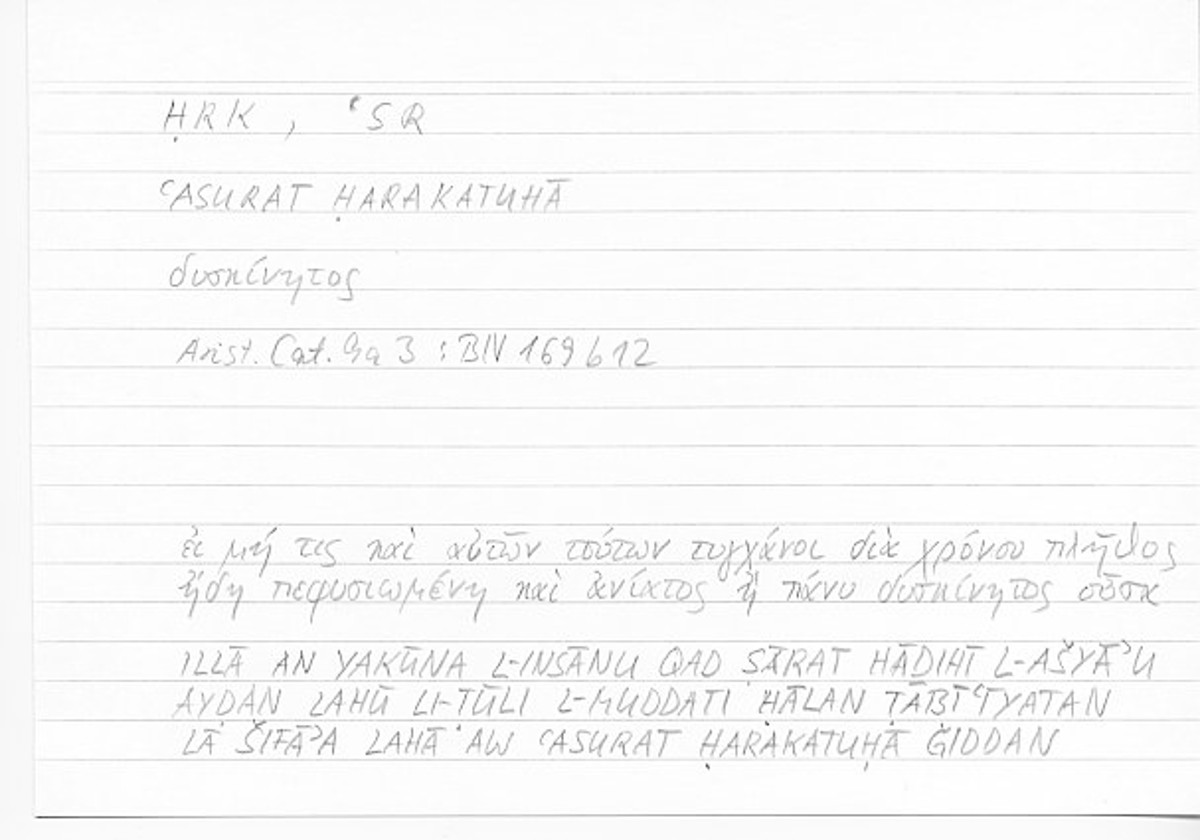 ḤRK , ʿSR
ʿASURAT ḤARAKATUHĀ
δυσκίνητος
Arist. Cat. 9a 3 : BN 169b12
εἰ μή τις καὶ αὐτῶν τούτων τυγχάνοι διὰ χρόνου πλῆθος
ἤδη πεφυσιωμένη καὶ ἀνίατος ἢ πάνυ δυσκίνητος οὖσα
ILLĀ AN YAKŪNA L-INSĀNU QAD ṢĀRAT HĀḎIHĪ L-AŠYĀʾU
AYḌAN LAHŪ LI-ṬŪLI L-MUDDATI ḤĀLAN ṬĀBĪʿĪYATAN
LĀ ŠIFĀʾA LAHĀ ʾAW ʿASURAT ḤARAKATUḤĀ ĞIDDAN